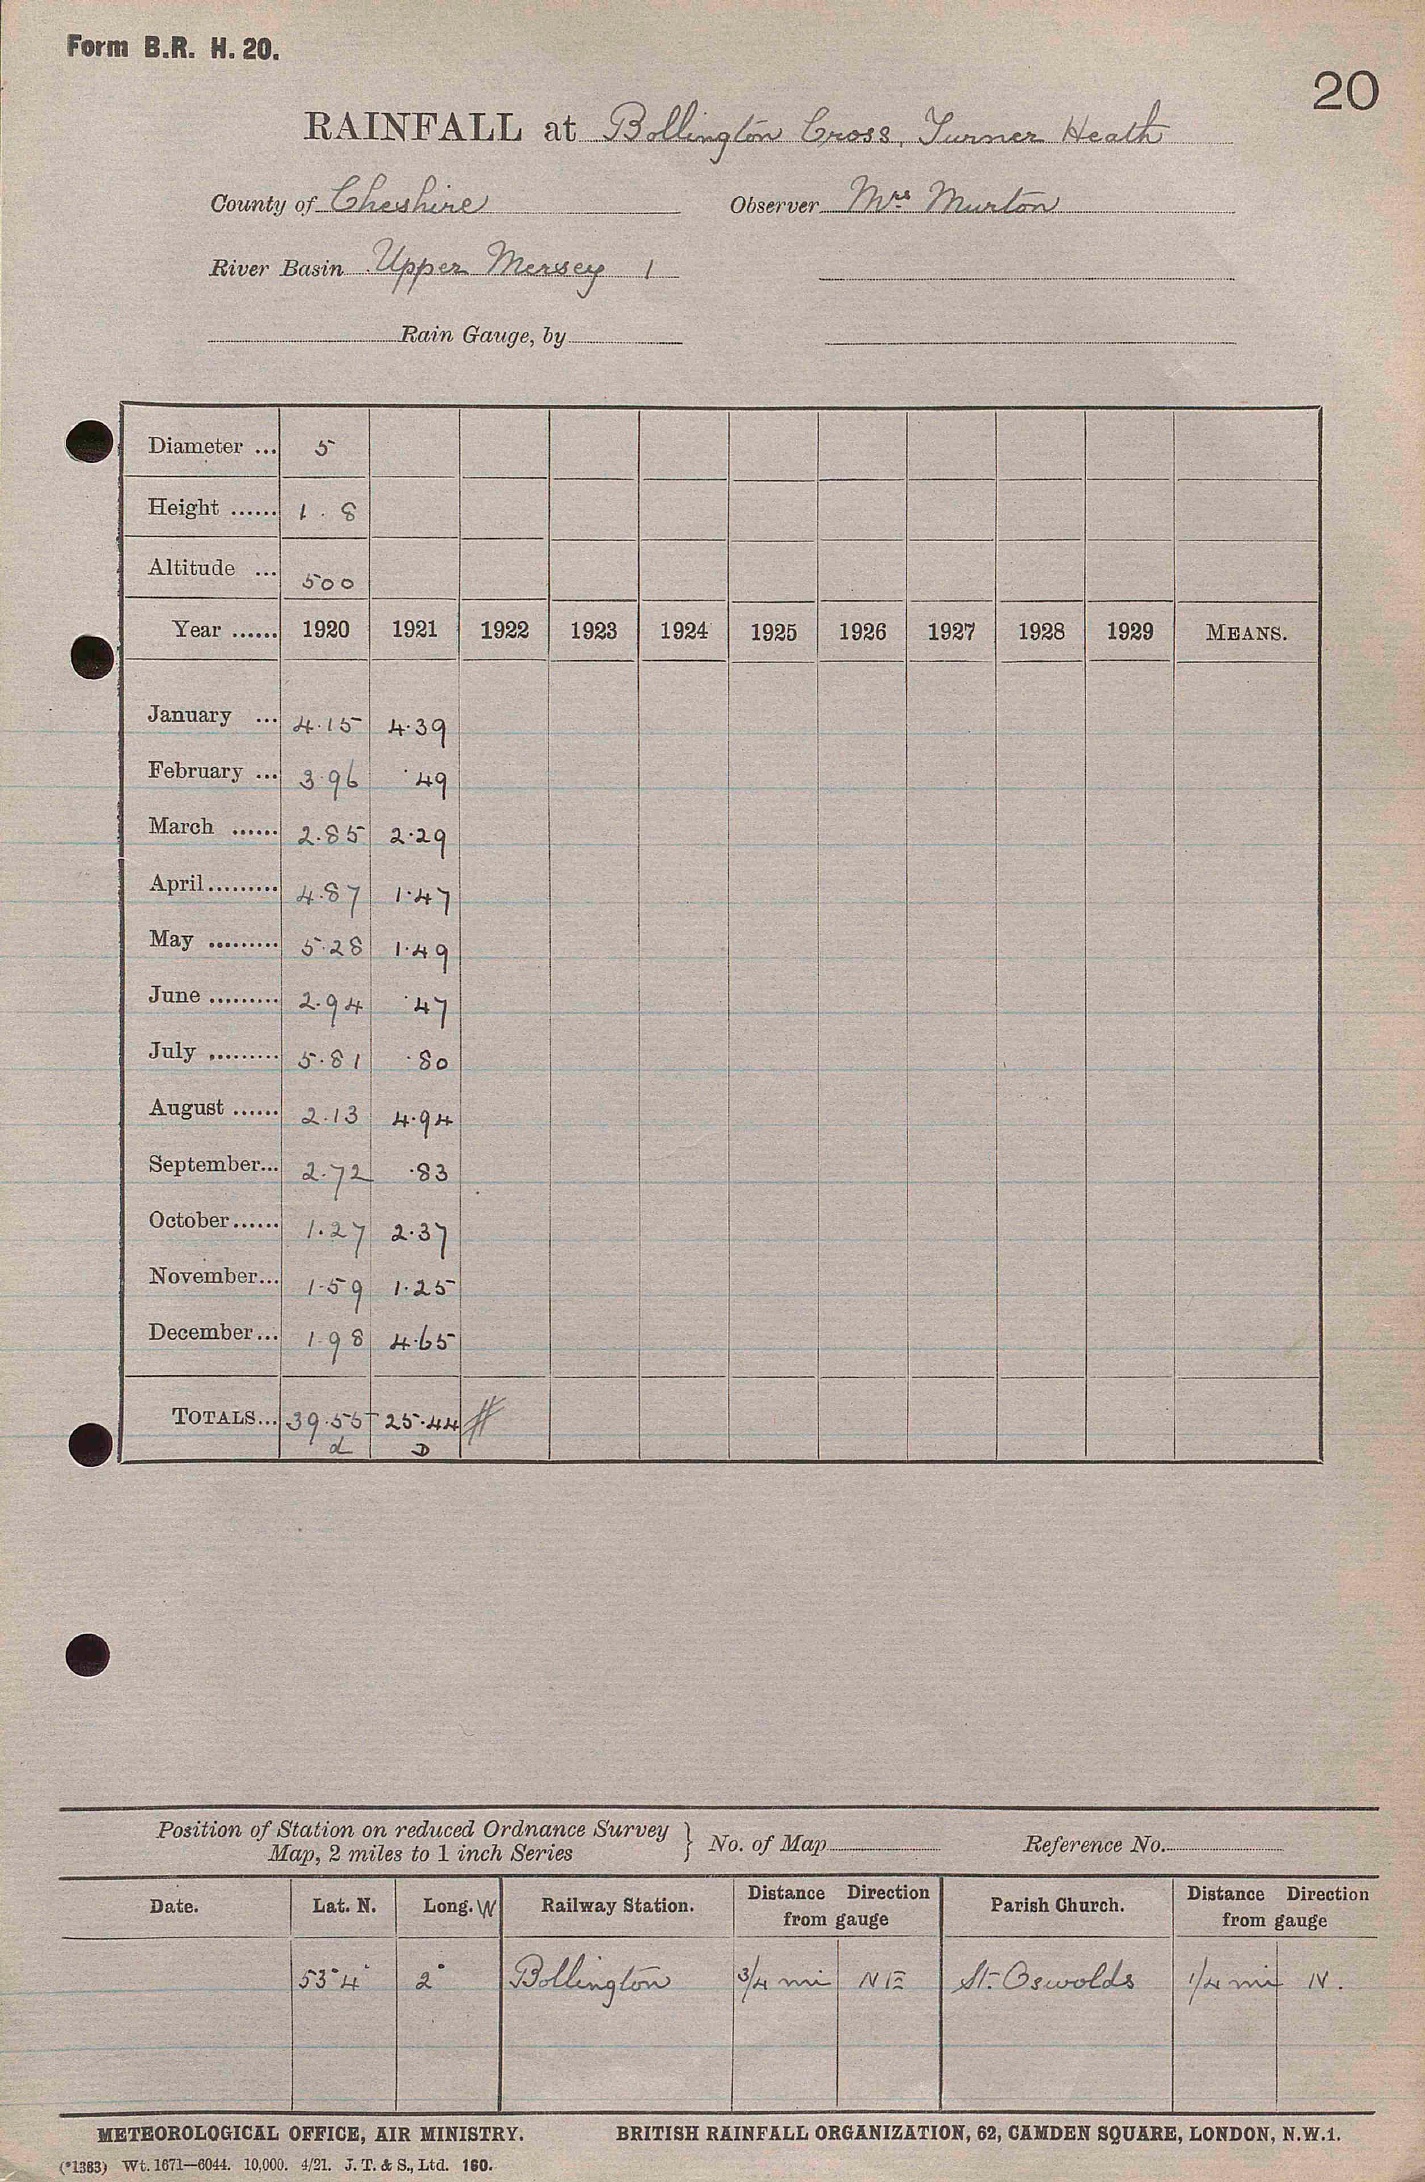 Form B.R. H. 20.
20
RAINFALL at Bollington Cross, Turner Heath
County of Cheshire Observer Mrs Murton
River Basin Upper Mersey 1
Rain Gauge, by
Diameter ... 5
Height ...... 1 . 8
Altitude ... 500
Year ...... 1920 1921 1922 1923 1924 1925 1926 1927 1928 1929 MEANS.
January ... 4.15 4.39
February ... 3.96 .49
March ...... 2.85 2.29
April ......... 4.87 1.47
May ......... 5.28 1.49
June ......... 2.94 .47
July ......... 5.81 .80
August ...... 2.13 4.94
September... 2.72 .83
October ...... 1.27 2.37
November... 1.59 1.25
December... 1.98 4.65
TOTALS... 39.55 25.44 #
d D
Position of Station on reduced Ordnance Survey
Map, 2 miles to 1 inch Series } No. of Map Reference No.
Date. Lat. N. Long. W Railway Station. Distance Direction from gauge Parish Church. Distance Direction from gauge
53°4' 2° Bollington 3/4 mi NE St. Oswolds 1/4 mi N.
METEOROLOGICAL OFFICE, AIR MINISTRY. BRITISH RAINFALL ORGANIZATION, 62, CAMDEN SQUARE, LONDON, N.W.1.
(*1383) Wt. 1671—6044. 10,000. 4/21. J. T. & S., Ltd. 160.